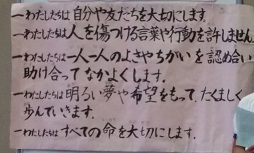 一わたしたちは自分や友だちを大切にします。
一わたしたちは人を傷つける言葉や行動を許しません
一わたしたちは一人一人のよさやちがいを認め合い
助け合ってなかよくします。
一わたしたちは明るい夢や希望をもって、たくましく
歩んでいきます。
一わたしたちはすべての命を大切にします。